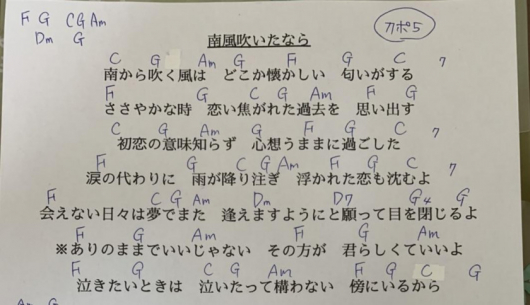 F G C G Am
カポ5
Dm G
南風吹いたなら
C G Am G F G C 7
南から吹く風は どこか懐かしい 匂いがする
F G C G Am F G
ささやかな時 恋い焦がれた過去を 思い出す
C G Am G F G C
初恋の意味知らず 心想うままに過ごした
F G C G Am F G C 7
涙の代わりに 雨が降り注ぎ 浮かれた恋も沈むよ
F C G Am Dm D7 G4 G
会えない日々は夢でまた 逢えますようにと願って目を閉じるよ
F G Am F G Am
※ありのままでいいじゃない その方が 君らしくていいよ
F G C G Am F G C G
泣きたいときは 泣いたって構わない 傍にいるから
Am G